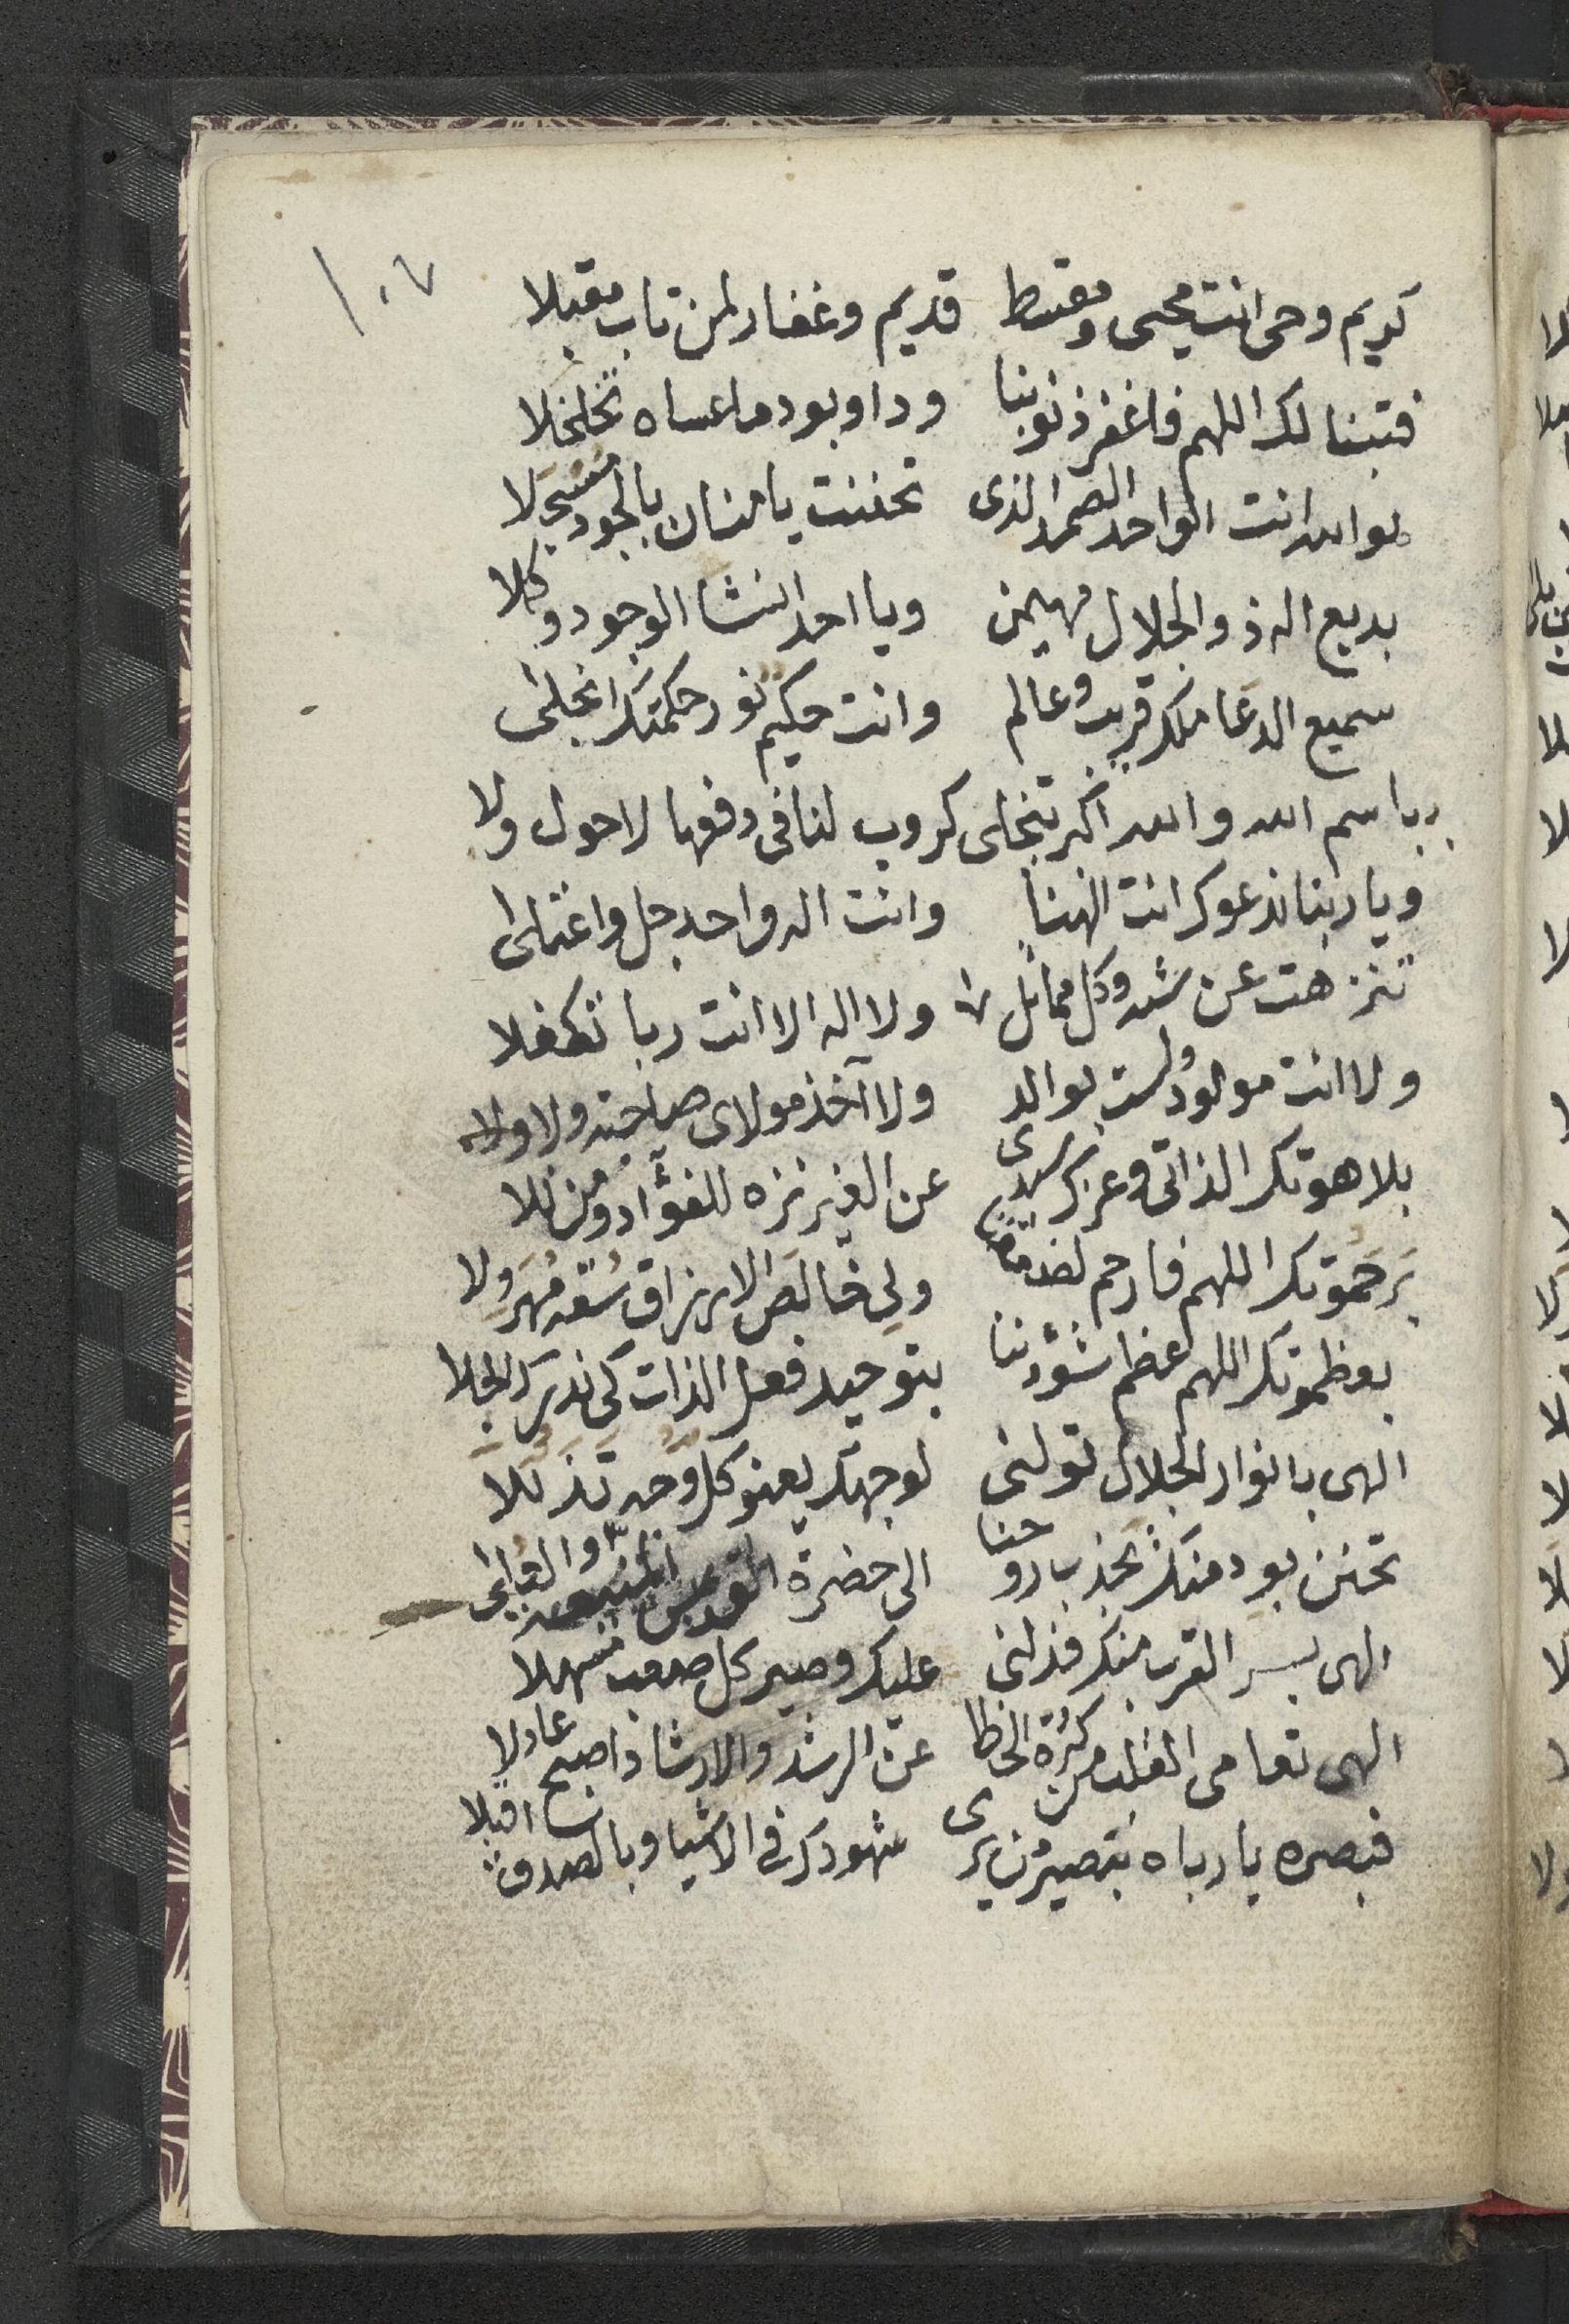 ١٠٧
كريم وحى انت محيى ومقسط قديم وغفار لمن تاب مقبلا
فتبنا لك اللهم فاغفر ذنوبنا وداو بود ما عساه تخلخلا
هو الله انت الواحد الصمد الذى تحننت يا منان بالجود مسجلا
بديع اله ذو الجلال مهيمن ويا احد انشا الوجود وكلا
سميع الدعا ملك قريب وعالم وانت حكيم نور حكمتك انجلى
وباسم الله والله اكبر تنجلى كروب لنا فى دفعها لا حول ولا
ويا ربنا ندعوك انت الهنا وانت اله واحد جل واعتلى
تنزهت عن شبه وكل مماثل ولا اله الا انت ربا تكفلا
ولا انت مولود ولست بوالد ولا آخذ مولاى صاحبة ولا ولا
بلاهوتك الذاتى وعزك سيدى عن الغير نزه للفؤاد
برحموتك اللهم فارحم ولى خالص الارزاق سقه مهرولا
بعظموتك اللهم عظم شؤوننا بتوحيد فعل الذات كى ندرك الجلا
الهى بانوار الجلال تولنى لوجهك يعنو كل وجه تذللا
تحنن بود منك نجذب ارواحنا الى حضرة القدس
الهى بسر القرب منك فدلنى عليك وصير كل صعب مسهلا
الهى تعامى القلب من كثرة الخطا عن الرشد والارشاد اصبح عادلا
فبصره يا رباه تبصير من يرى شهودك فى الاشيا وبالصدق اقبلا